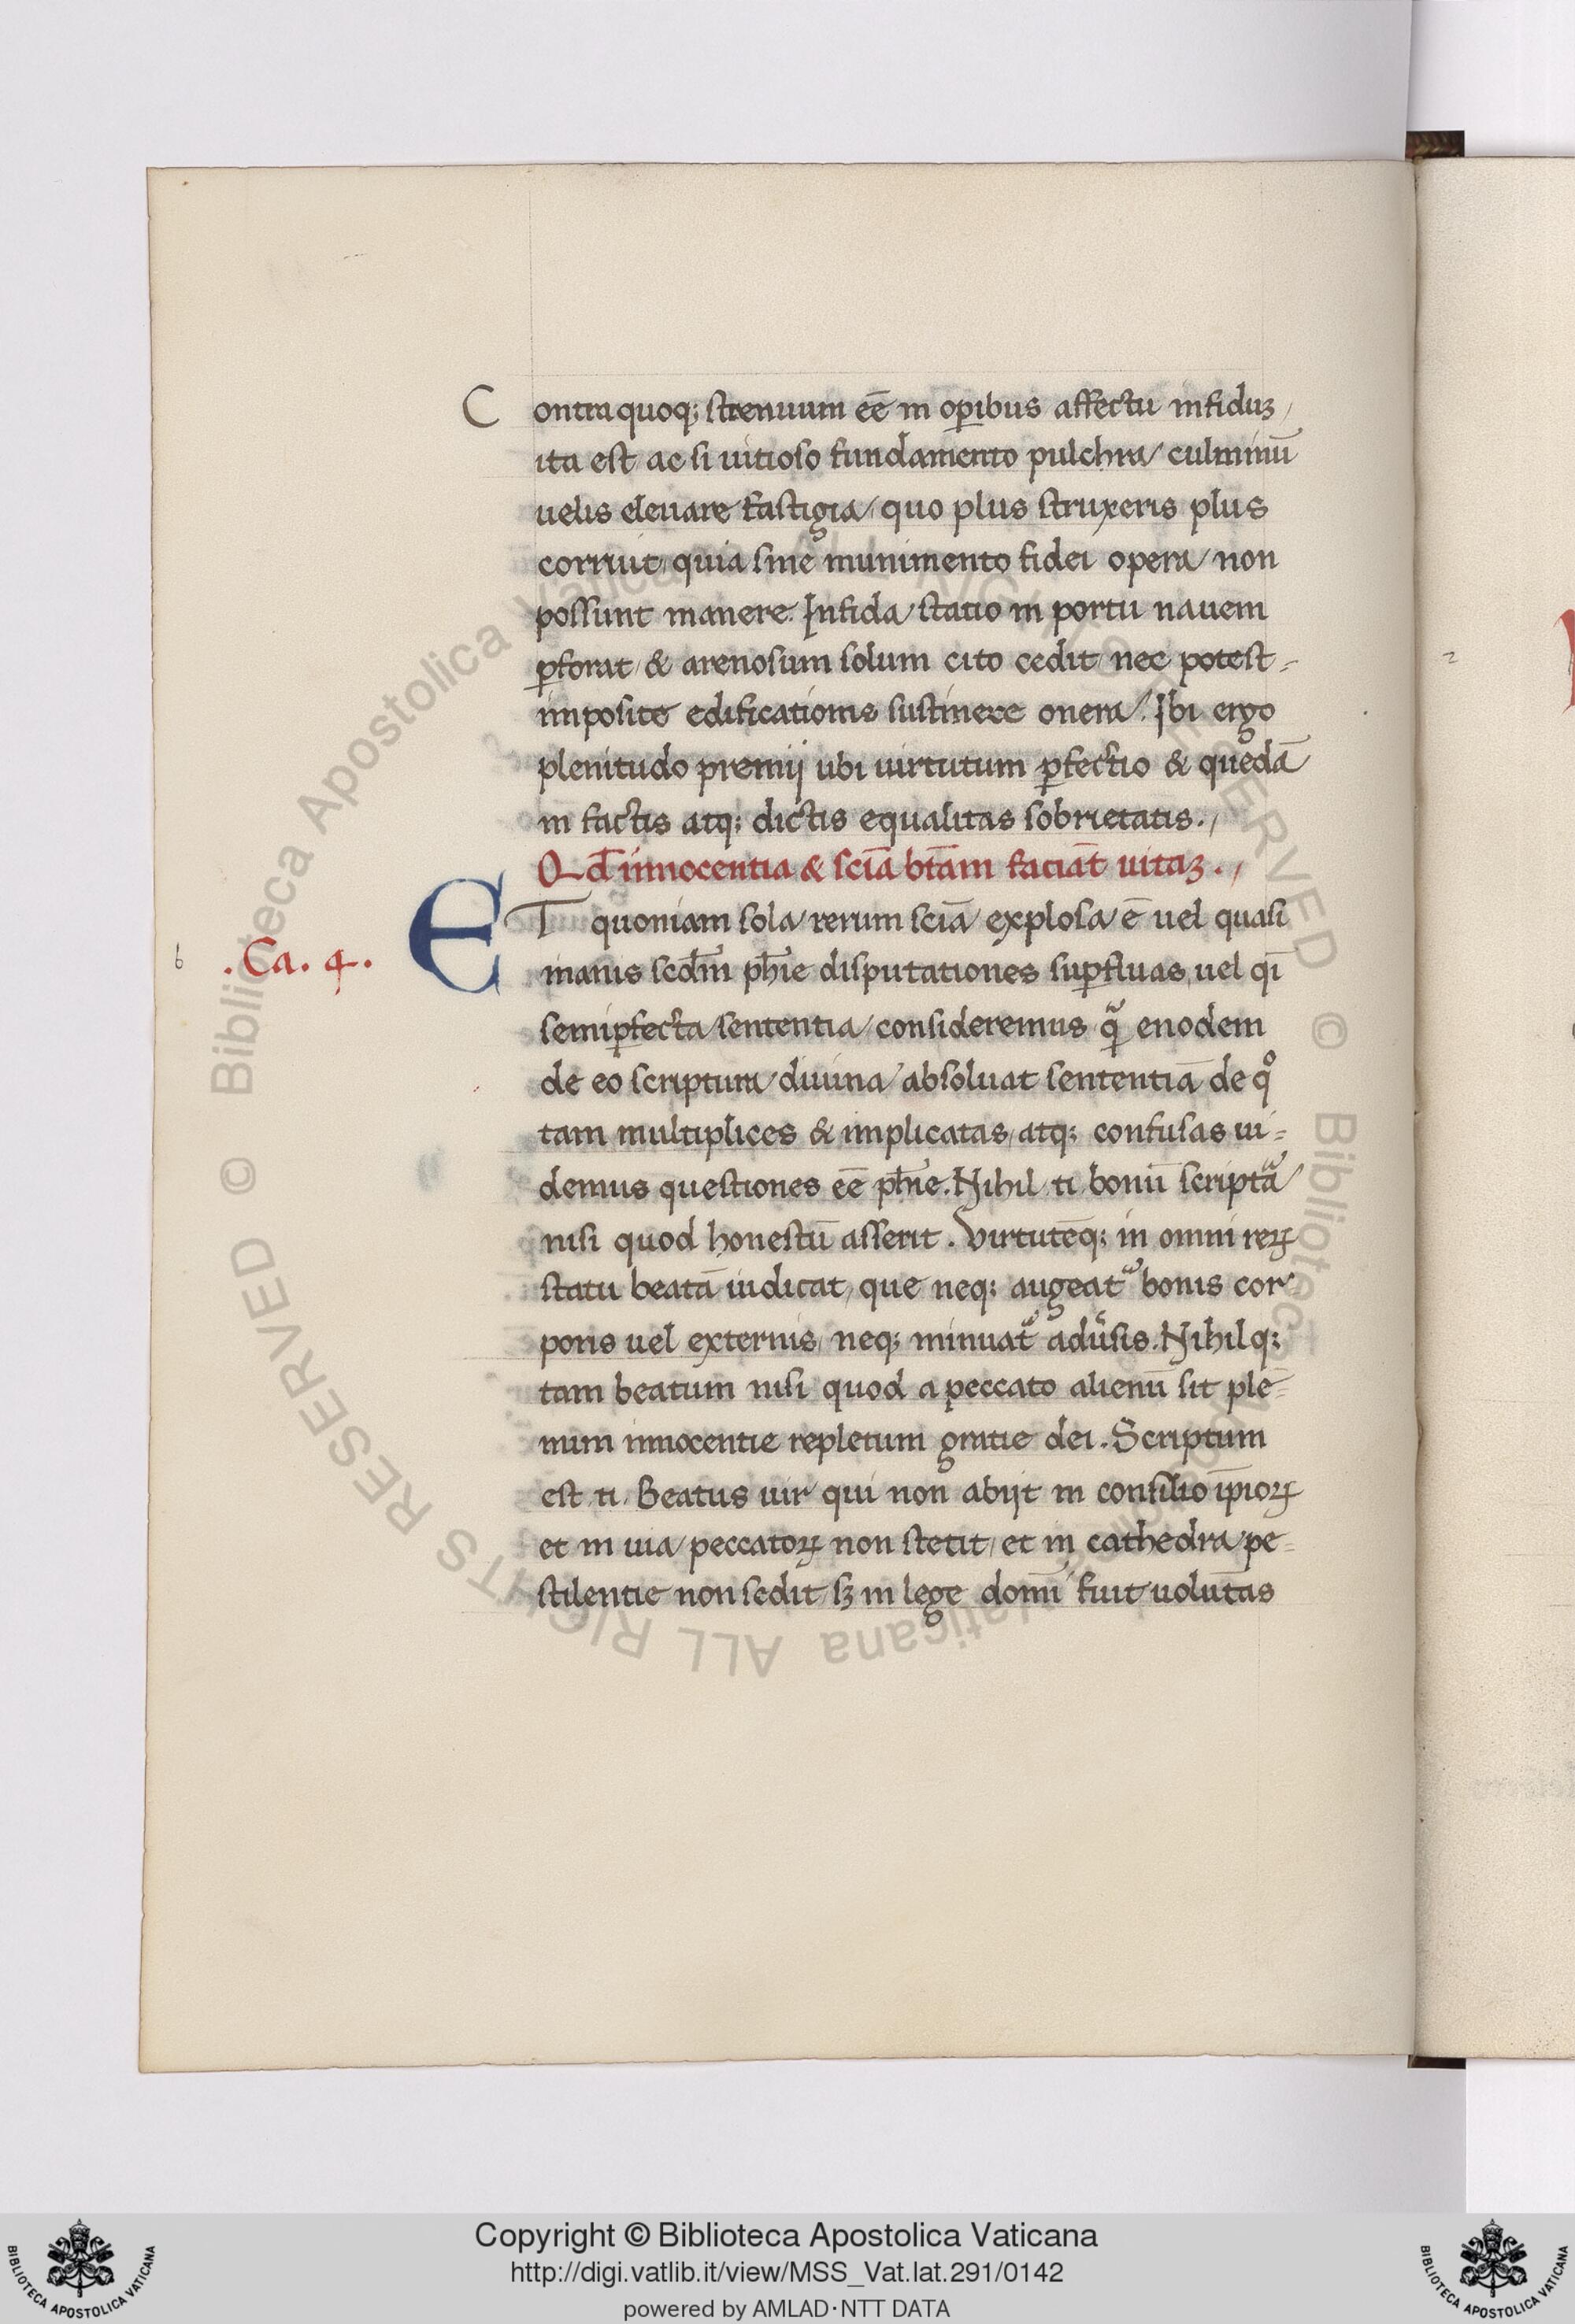 Contra quoq; strenuum eē in oꝑibus affectu infiduꝫ /
ita est ac si uitioso fundamento pulchra / culminū
uelis eleuare fastigia / quo plus struxeris plus
corruit / quia sine munimento fidei opera / non
possunt manere. Infida / statio in portu nauem
ꝑforat / & arenosum solum cito cedit / nec potest =
imposite edificationis sustinere onera /. Ibi ergo
plenitudo premij ubi uirtutum ꝑfectio & quedā
in factis atq; dictis equalitas sobrietatis . /
Qd̄ innocentia & scīa btām faciāt uitaꝫ . /
ET quoniam sola / rerum scīa / explosa / ē uel quasi
. Ca . 4 .
6
inanis scd̄m ph̄ie disputationes suꝑfluas, uel qi
semiꝑfecta / sententia / consideremus qᵃ enodem
de eo scriptura / diuina / absoluat sententiā de qº
tam multiplices & implicatas / atq; confusas ui =
demus questiones eē ph̄ie . Nihil .n. bonū scriptᵃ /
nisi quod honestū asserit . Virtutēq; in omni reꝝ
statu beatā iudicat / que neq; augeatᵘʳ bonis cor
poris uel externis / neq; minuatᵘʳ aduˢsis . Nihilq;
tam beatum nisi quod a peccato alienū sit plē =
num innocentie repletum gratie dei . Scriptum
est .n. Beatus uir qui non abijt in consilio īpioꝝ
et in uia / peccatoꝝ non stetit / et in cathedra / pe =
stilentie non sedit / sꝫ in lege domī fuit uolūtas
2
© Biblioteca Apostolica Vaticana ALL RIGHTS RESERVED © Biblioteca Apostolica Vaticana ALL RIGHTS RESERVED
BIBLIOTECA APOSTOLICA VATICANA
Copyright © Biblioteca Apostolica Vaticana
http://digi.vatlib.it/view/MSS_Vat.lat.291/0142
powered by AMLAD·NTT DATA
BIBLIOTECA APOSTOLICA VATICANA